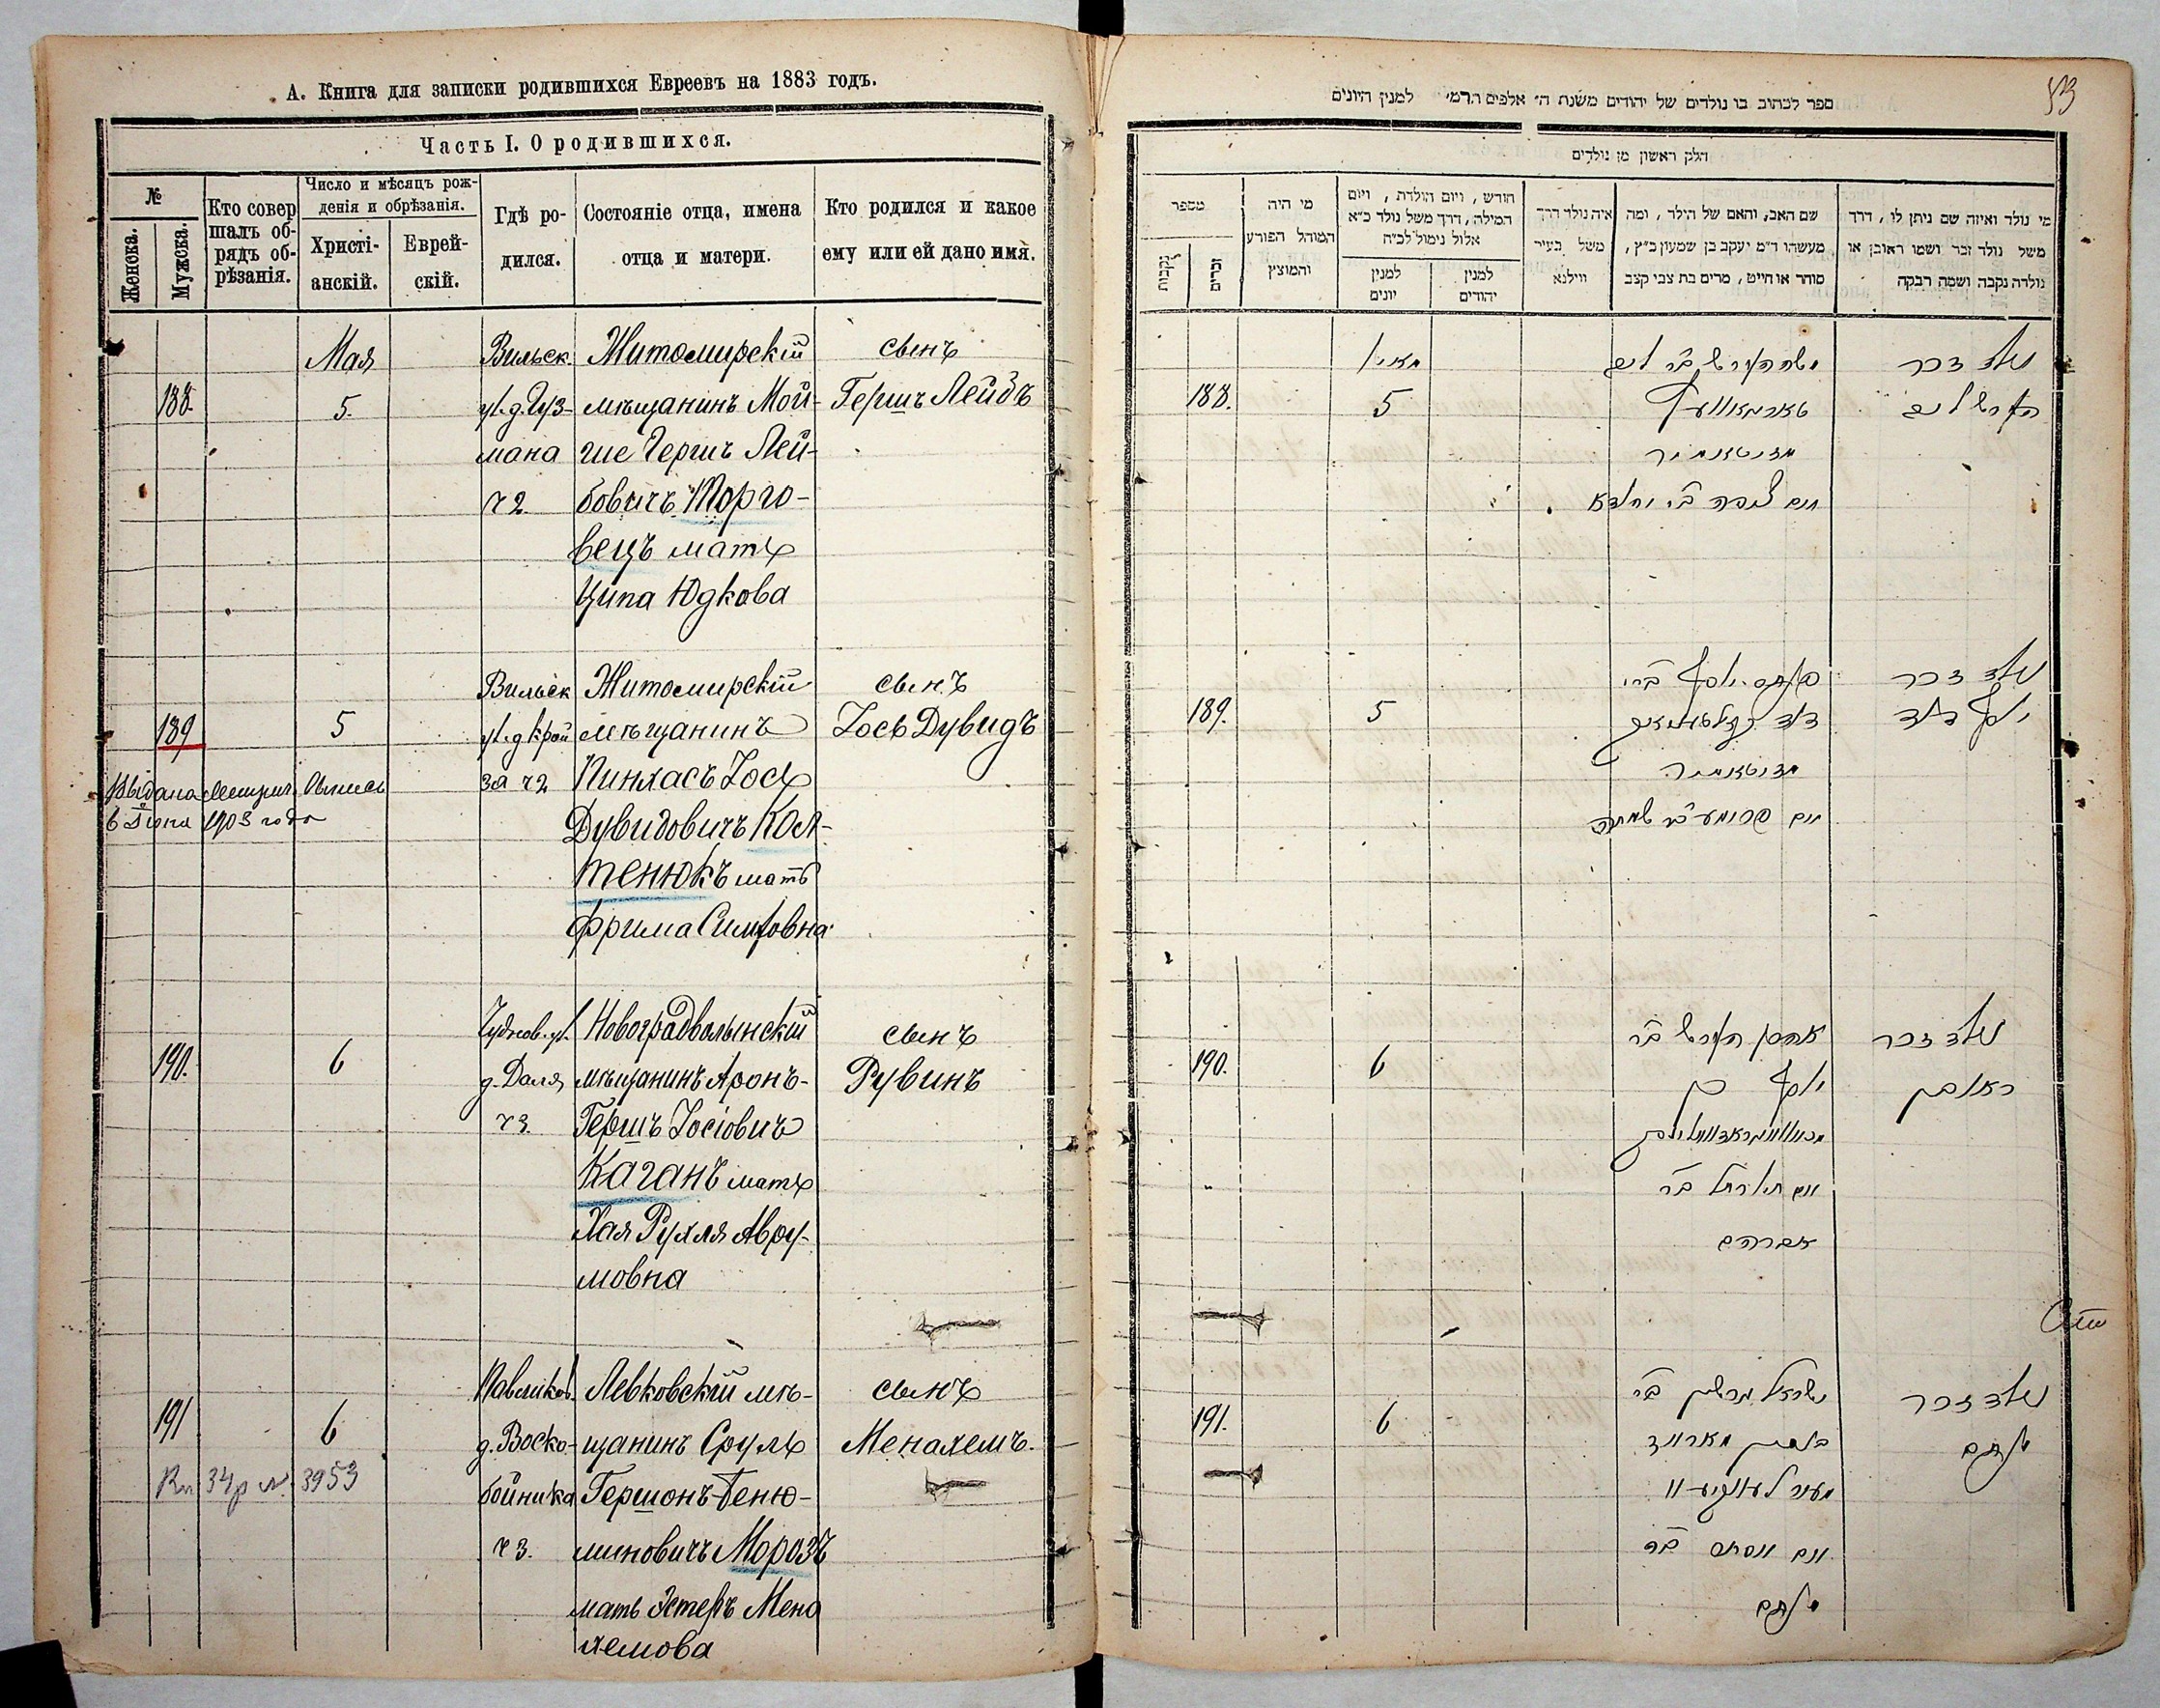 А. Книга для записки родившихся Евреевъ на 1883 годъ.
Часть I. О родившихся.
№
Женска.
Мужска.
Кто совер
шалъ об-
рядъ об-
рѣзанія.
Число и мѣсяцъ рож-
денія и обрѣзанія.
Христі-
анскій.
Еврей-
скій.
Гдѣ ро-
дился.
Состояніе отца, имена
отца и матери.
Кто родился и какое
ему или ей дано имя.
188.
Мая
5.
Вильск.
ул. д. Гуз-
мана
ч 2.
Житомирскій
мѣщанинъ Мой-
ше Гершъ Лей-
бовичъ Торго-
вецъ мать
Ципа Юдкова
сынъ
Гершъ Лейбъ
189
5
Выдана Метрич. Выпись
6 1903 года
Вильск
ул. д Крой
за ч 2
Житомирскій
мѣщанинъ
Пинхасъ Іось
Дувидовичъ Кол-
тенюкъ мать
Фрима Симховна
сынъ
Іось Дувидъ
190.
6
Чуднов. ул.
д. Даля
ч 3.
Новоградволынскій
мѣщанинъ Аронъ-
Гершъ Іосіовичъ
Каганъ мать
Хая Рухля Авру-
мовна
сынъ
Рувинъ
191
6
3953
Павликов.
д. Воско-
бойника
ч 3.
Левковскій мѣ-
щанинъ Сруль
Гершонъ Беню-
миновичъ Морозъ
мать Эстеръ Мена
хемова
сынъ
Менахемъ.
53
ספר לכתוב בו נולדים של יהודים משנת ה׳ אלפים תרמ׳ למנין היונים
חלק ראשון מן נולדים
מספר
נקבות
זכרים
מי היה
המוהל הפורע
והמוצץ
חודש, ויום הולדת, ויום
המילה, דרך משל נולד כ״א
אלול נימול לכ״ח
למנין
יונים
למנין
יהודים
איה נולד דרך
משל בעיר
ווילנא
שם האב, והאם של הילד, ומה
מעשהו ד״מ יעקב בן שמעון כ״ץ,
סוחר או חייט, מרים בת צבי קצב
מי נולד ואיזה שם ניתן לו, דרך
משל נולד זכר ושמו ראובן או
נולדה נקבה ושמה רבקה
188.
מאיי
5
משה הערש ב״ר ליב
מזיטאמיר
נולד זכר
הערש ליב
189.
5
פנחס יוסף ב״ר
דוד
מזיטאמיר
נולד זכר
יוסף דוד
190.
6
אהרן הערש ב״ר
יוסף כהן
אברהם
נולד זכר
ראובן
191.
6
ישראל גרשון ב״ר
בנימין מאראז
מנחם
נולד זכר
מנחם